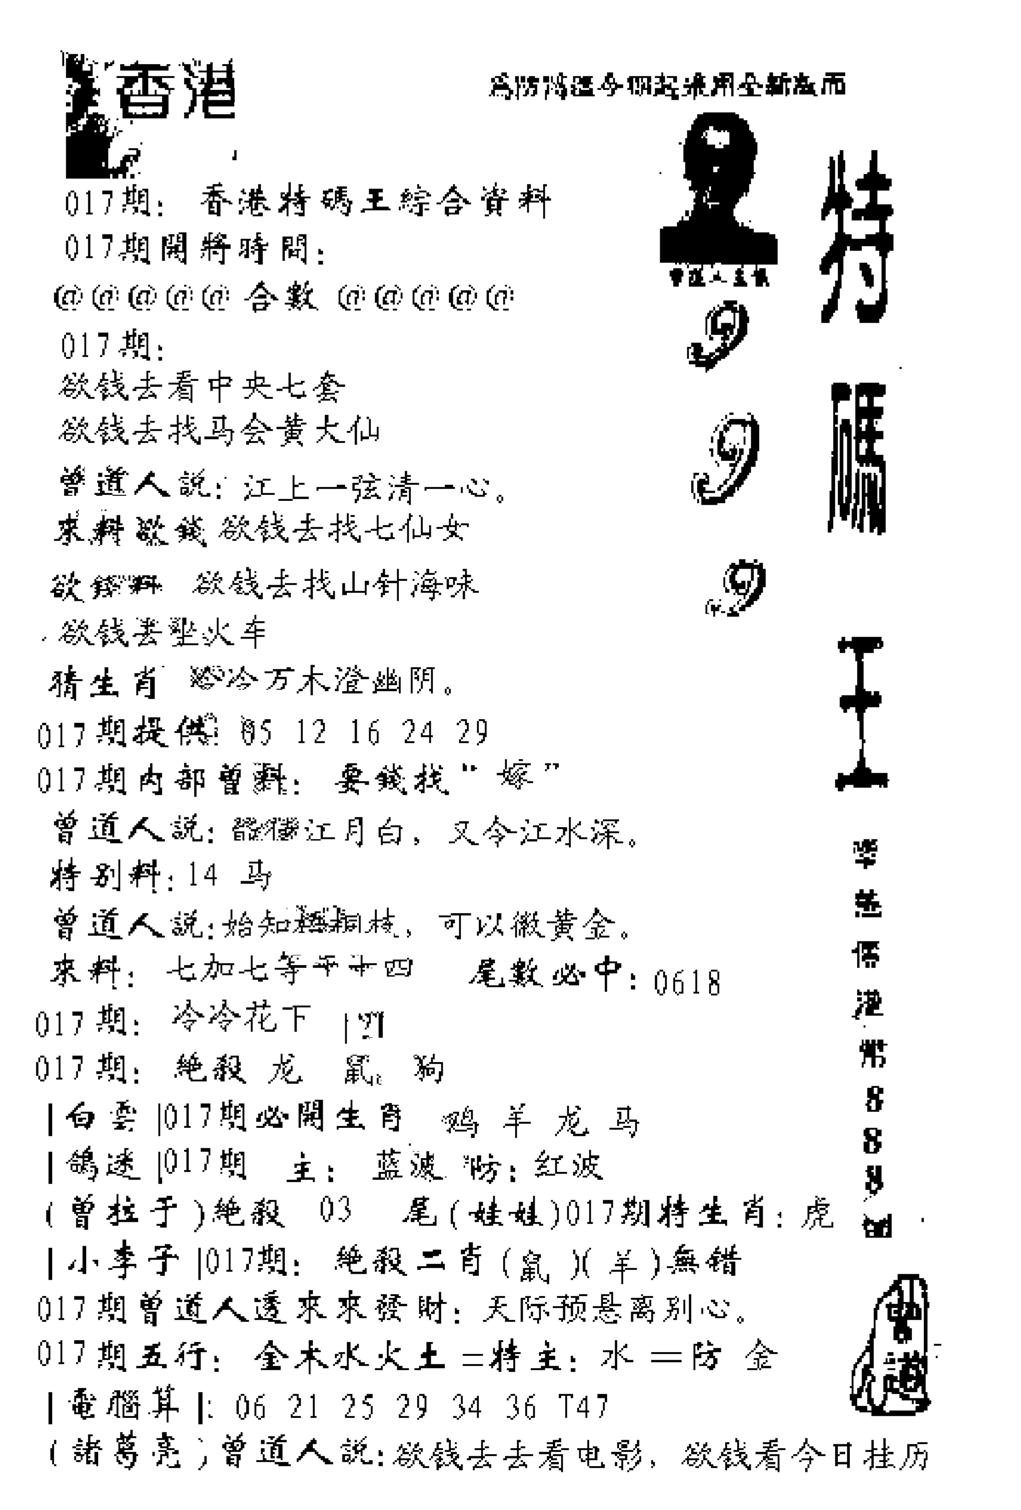 香港
特碼王
999
017期: 香港特碼王綜合資料
017期開將時間:
@@@@@ 合數 @@@@@
017期:
欲钱去看中央七套
欲钱去找马会黄大仙
曾道人説: 江上一弦清一心。
來料欲錢 欲钱去找七仙女
欲錢料 欲钱去找山针海味
欲钱去坐火车
猜生肖 冷冷万木澄幽阴。
017期提供: 05 12 16 24 29
017期内部曾料: 要錢找“嫁”
曾道人説: 江月白, 又令江水深。
特别料: 14 马
曾道人説: 始知桐枝, 可以徽黄金。
來料: 七加七等于十四 尾數必中: 0618
017期: 冷冷花下
017期: 絶殺 龙 鼠 狗
|白雲|017期必開生肖 鸡 羊 龙 马
|鴿迷|017期 主: 蓝波 防: 红波
(曾拉于)絶殺 03 尾(娃娃)017期特生肖: 虎
|小李子|017期: 絶殺二肖(鼠)(羊)無错
017期曾道人透來來發財: 天际预悬离别心。
017期五行: 金木水火土=特主: 水=防 金
|電腦算|: 06 21 25 29 34 36 T47
(諸葛亮)曾道人説: 欲钱去去看电影, 欲钱看今日挂历
港幣888
曾道